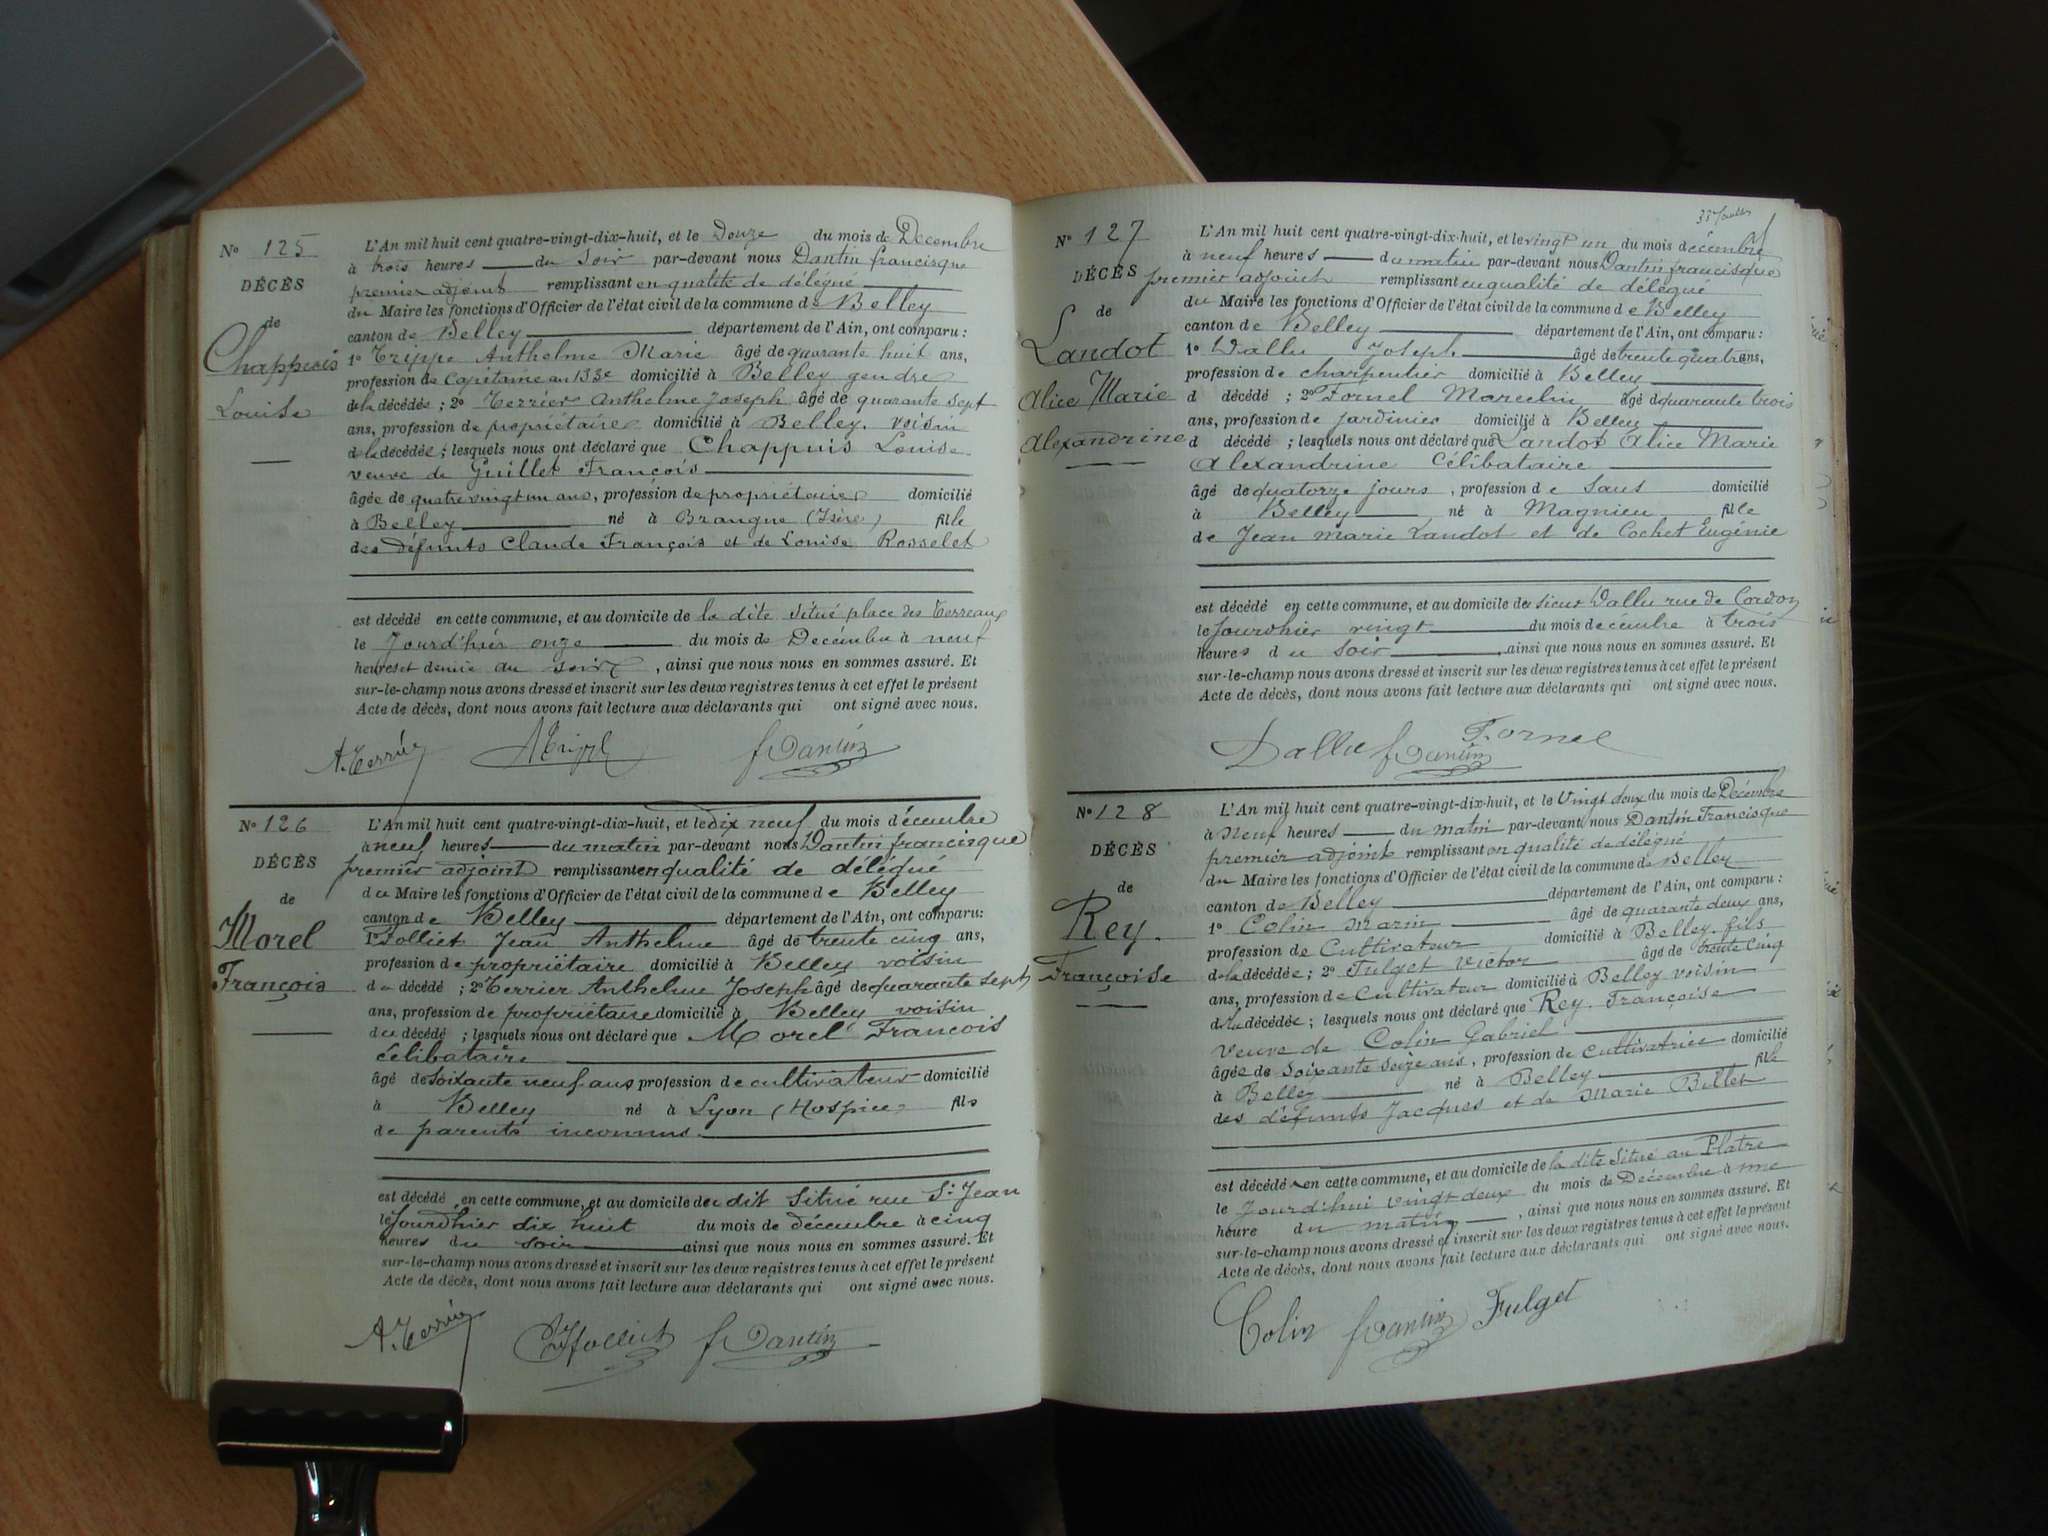 No 125
DÉCÈS
de
Chappuis
Louise
L'An mil huit cent quatre-vingt-dix-huit, et le Douze du mois de Décembre
à trois heures du soir par-devant nous Dantin francisque
premier adjoint remplissant en qualité de délégué
du Maire les fonctions d'Officier de l'état civil de la commune de Belley
canton de Belley département de l'Ain, ont comparu :
1o Tryppe Anthelme Marie âgé de quarante huit ans,
profession de Capitaine au 133e domicilié à Belley gendre
de la décédée ; 2o Terrier Anthelme Joseph âgé de quarante sept
ans, profession de propriétaire domicilié à Belley, voisin
de la décédée ; lesquels nous ont déclaré que Chappuis Louise
veuve de Guillet François
âgée de quatre vingt un ans, profession de propriétaire domicilié
à Belley né à Brangue (Isère) fille
des défunts Claude François et de Louise Rosselet
est décédé en cette commune, et au domicile de la dite situé place des Terreaux
le Jourd'hier onze du mois de Décembre à neuf
heures et demie du soir, ainsi que nous nous en sommes assuré. Et
sur-le-champ nous avons dressé et inscrit sur les deux registres tenus à cet effet le présent
Acte de décès, dont nous avons fait lecture aux déclarants qui ont signé avec nous.
A. Terrier f Dantin
No 126
DÉCÈS
de
Morel
François
L'An mil huit cent quatre-vingt-dix-huit, et le dix neuf du mois décembre
à neuf heures du matin par-devant nous Dantin francisque
premier adjoint remplissant en qualité de délégué
du Maire les fonctions d'Officier de l'état civil de la commune de Belley
canton de Belley département de l'Ain, ont comparu :
1o Folliet Jean Anthelme âgé de trente cinq ans,
profession de propriétaire domicilié à Belley voisin
du décédé ; 2o Terrier Anthelme Joseph âgé de quarante sept
ans, profession de propriétaire domicilié à Belley voisin
du décédé ; lesquels nous ont déclaré que Morel François
célibataire
âgé de soixante neuf ans profession de cultivateur domicilié
à Belley né à Lyon (Hospice) fils
de parents inconnus.
est décédé en cette commune, et au domicile du dit situé rue St Jean
le Jourdhier dix huit du mois de décembre à cinq
heures du soir ainsi que nous nous en sommes assuré. Et
sur-le-champ nous avons dressé et inscrit sur les deux registres tenus à cet effet le présent
Acte de décès, dont nous avons fait lecture aux déclarants qui ont signé avec nous.
A. Terrier folliet f Dantin
No 127
DÉCÈS
de
Landot
Alice Marie
Alexandrine
L'An mil huit cent quatre-vingt-dix-huit, et le vingt un du mois décembre
à neuf heures du matin par-devant nous Dantin francisque
premier adjoint remplissant en qualité de délégué
du Maire les fonctions d'Officier de l'état civil de la commune de Belley
canton de Belley département de l'Ain, ont comparu :
1o Dallu Joseph âgé de trente quatre ans,
profession de charpentier domicilié à Belley
d décédé ; 2o Fornel Marcelin âgé de quarante trois
ans, profession de jardinier domicilié à Belley
d décédé ; lesquels nous ont déclaré que Landot Alice Marie
Alexandrine célibataire
âgé de quatorze jours, profession de sans domicilié
à Belley né à Magnieu fille
de Jean Marie Landot et de Cochet Eugénie
est décédé en cette commune, et au domicile du sieur Dallu rue de Cordon
le Jourdhier vingt du mois décembre à trois
heures du soir, ainsi que nous nous en sommes assuré. Et
sur-le-champ nous avons dressé et inscrit sur les deux registres tenus à cet effet le présent
Acte de décès, dont nous avons fait lecture aux déclarants qui ont signé avec nous.
Dallu f Dantin Fornel
No 128
DÉCÈS
de
Rey.
Françoise
L'An mil huit cent quatre-vingt-dix-huit, et le Vingt deux du mois de Décembre
à Neuf heures du matin par-devant nous Dantin Francisque
premier adjoint remplissant en qualité de délégué
du Maire les fonctions d'Officier de l'état civil de la commune de Belley
canton de Belley département de l'Ain, ont comparu :
1o Colin Marin âgé de quarante deux ans,
profession de Cultivateur domicilié à Belley, fils
de la décédée ; 2o Fulget Victor âgé de trente cinq
ans, profession de Cultivateur domicilié à Belley voisin
de la décédée ; lesquels nous ont déclaré que Rey. Françoise
veuve de Colin Gabriel
âgée de soixante seize ans, profession de cultivatrice domicilié
à Belley né à Belley fille
des défunts Jacques et de Marie Billet
est décédé en cette commune, et au domicile de la dite situé au Platre
le Jourd'hui vingt deux du mois de Décembre à une
heure du matin, ainsi que nous nous en sommes assuré. Et
sur-le-champ nous avons dressé et inscrit sur les deux registres tenus à cet effet le présent
Acte de décès, dont nous avons fait lecture aux déclarants qui ont signé avec nous.
Colin f Dantin Fulget